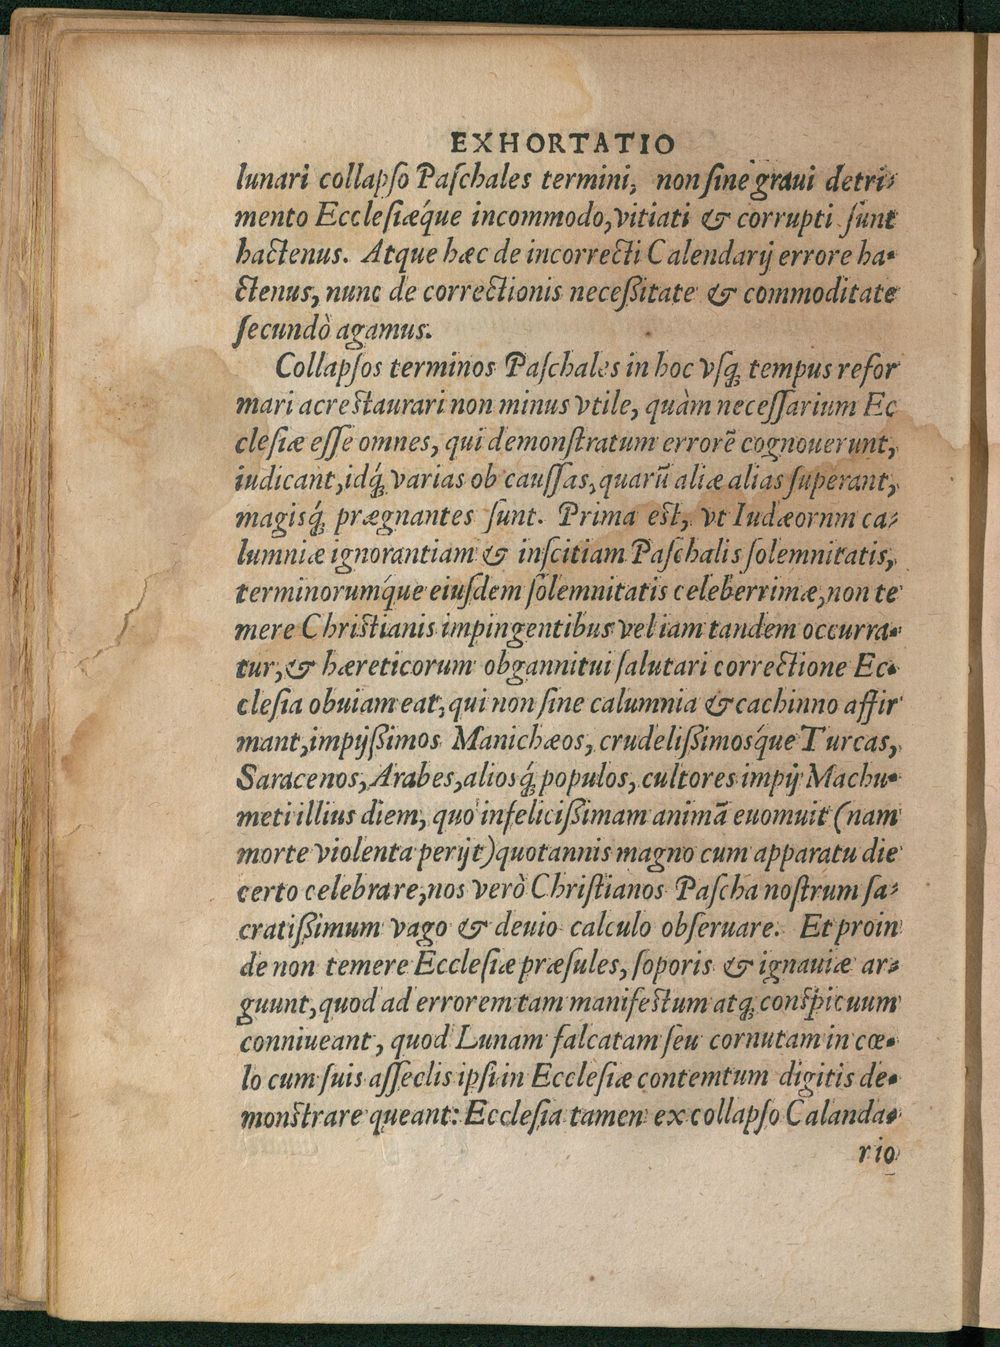 EXHORTATIO
lunari collapſo Paſchales termini, non ſine graui detri-
mento Eccleſiǽque incommodo, vitiati & corrupti ſunt
hactenus. Atque hæc de incorrecti Calendarij errore ha-
ctenus, nunc de correctionis neceßitate & commoditate
ſecundò agamus.
Collapſos terminos Paſchales in hoc vſq; tempus refor
mari ac reſtaurari non minus vtile, quàm neceſſarium Ec
cleſiæ eſſe omnes, qui demonſtratum errorē cognouerunt,
iudicant, idq́; varias ob cauſſas, quarū aliæ alias ſuperant,
magisq́; prægnantes ſunt. Prima eſt, vt Iudæornm ca-
lumniæ ignorantiam & inſcitiam Paſchalis ſolemnitatis,
terminorumq́ue eiuſdem ſolemnitatis celeberrimæ, non te
mere Chriſtianis impingentibus vel iam tandem occurra-
tur, & hæreticorum obgannitui ſalutari correctione Ec-
cleſia obuiam eat, qui non ſine calumnia & cachinno affir
mant, impijßimos Manichæos, crudelißimosq́ue Turcas,
Saracenos, Arabes, aliosq́; populos, cultores impij Machu-
meti illius diem, quo infelicißimam animā euomuit (nam
morte violenta perijt) quotannis magno cum apparatu die
certo celebrare, nos verò Chriſtianos Paſcha noſtrum ſa-
cratißimum vago & deuio calculo obſeruare. Et proin
de non temere Eccleſiæ præſules, ſoporis & ignauiæ ar-
guunt, quod ad errorem tam manifeſtum atq; conſpicuum
conniueant, quod Lunam falcatam ſeu cornutam in cœ-
lo cum ſuis aſſeclis ipſi in Eccleſiæ contemtum digitis de-
monſtrare queant: Eccleſia tamen ex collapſo Calanda-
rio